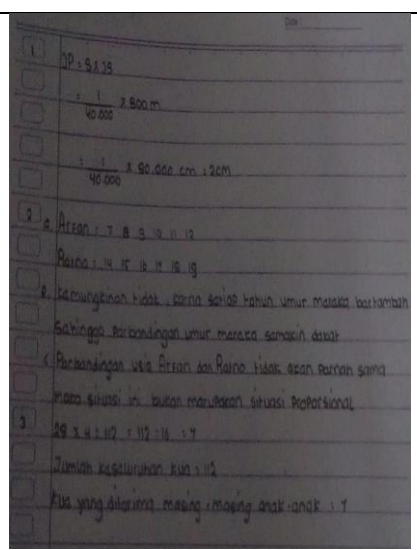 Date
1 JP = S x JS
= 1/40.000 x 800 m
= 1/40.000 x 80.000 cm = 2cm
2 a. Arfan : 7 8 9 10 11 12
Raino : 14 15 16 17 18 19
b. kemungkinan tidak, karna setiap tahun umur mereka bertambah
sehingga perbandingan umur mereka semakin dekat
c. Perbandingan usia Arfan dan Raino tidak akan pernah sama
maka situasi ini bukan merupakan situasi proporsional
3 28 x 4 = 112 = 112 : 16 = 7
Jumlah keseluruhan kue : 112
kue yang diterima masing-masing anak-anak : 7